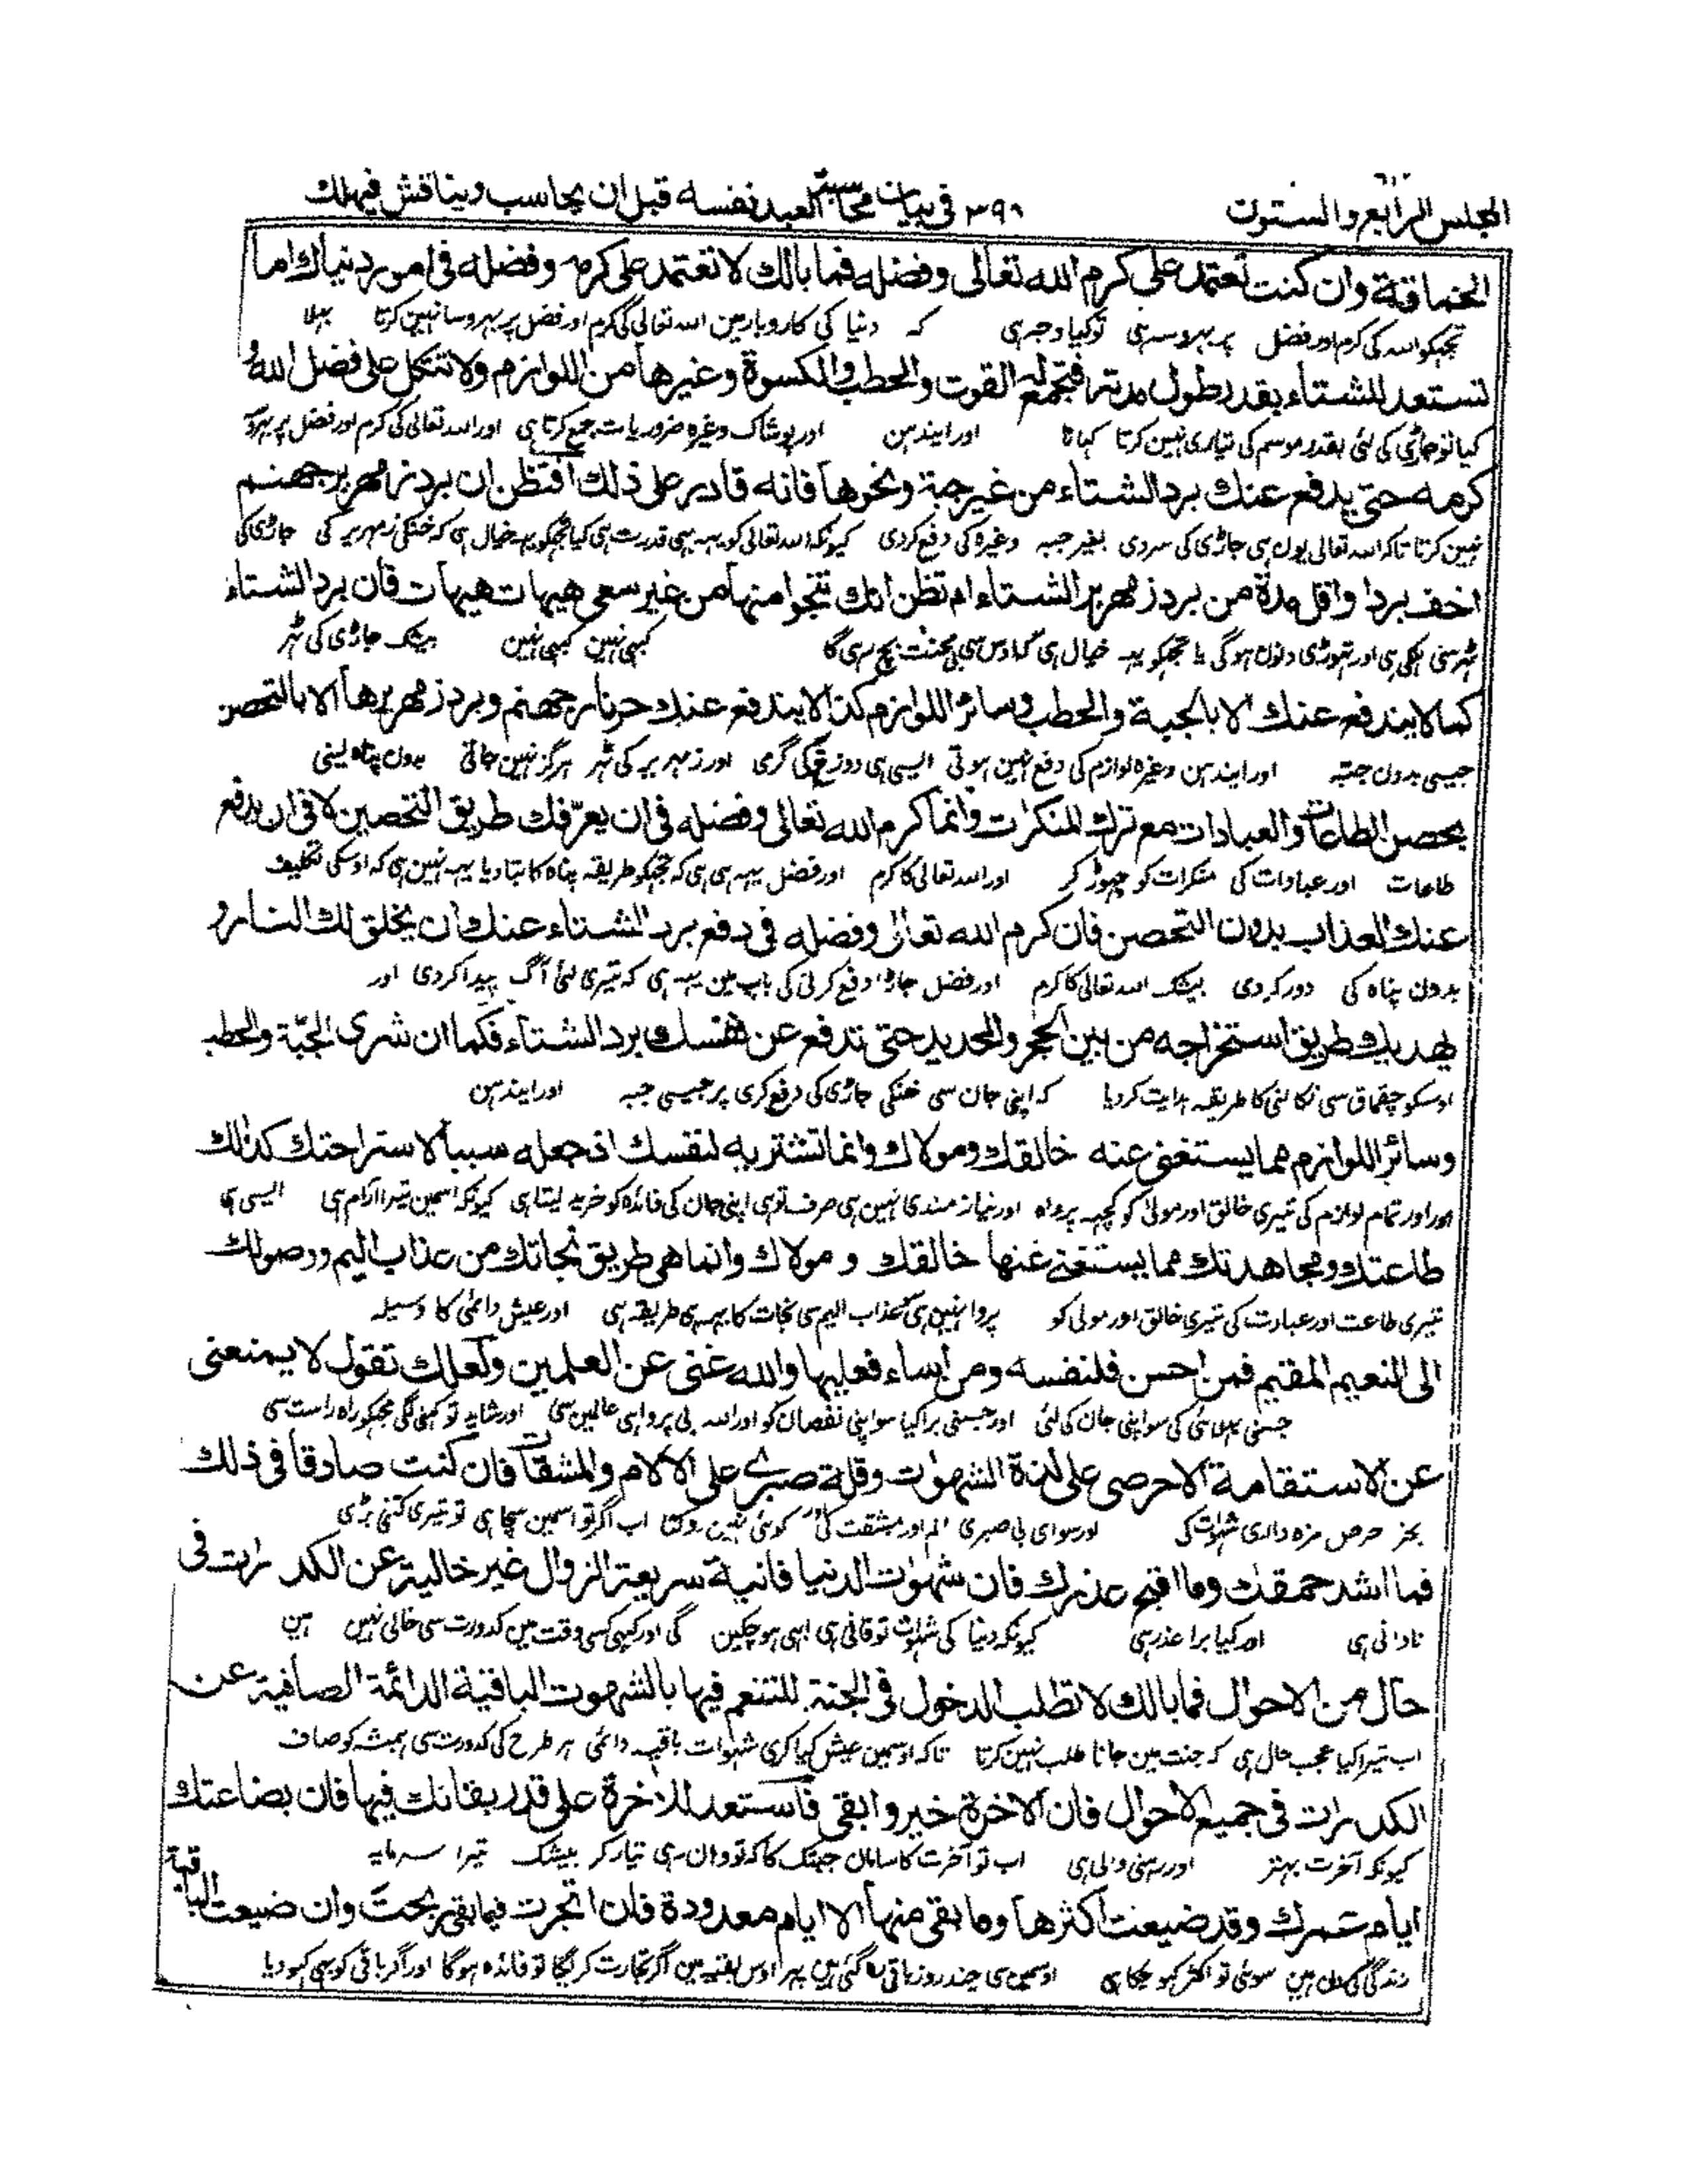 المجلس الرابع والستون ٣٩٨ فى بيان محاسبة العبد نفسه قبل ان يحاسب ويناقش فيهلك
الحماقة وان كنت تعتمد على كرم الله تعالى وفضله فما بالك لا تعتمد على كرمه وفضله فى امور دنياك اما
تجہکو اللہ کی کرم اور فضل پر بہروسہ ہی توکیا وجہ ہی کہ دنیا کی کاروبار مین اللہ تعالی کی کرم اور فضل پر بہروسا نہین کرتا بہلا
تستعد للشتاء بقدر طول مدته فتجمع له القوت والحطب والكسوة وغيرها من اللوازم ولا تتكل على فضل الله و
کیا تو جاڑی کی لئی بقدر موسم کی تیاری نہین کرتا کہانا اور ایندہن اور پوشاک وغیرہ ضروریات جمع کرتا ہی اور اللہ تعالی کی کرم اور فضل پر بہروسہ
كرمه حتى يدفع عنك برد الشتاء من غير جبة ونحوها فانه قادر على ذلك افتظن ان برد زمهرير جهنم
نہین کرتا تاکہ اللہ تعالی یون ہی جاڑی کی سردی بغیر جبہ وغیرہ کی دفع کردی کیونکہ اللہ تعالی کو یہہ بہی قدرت ہی کیا تجہکو یہہ خیال ہی کہ خنکی زمہریر کی جاڑی کی
اخف بردا واقل مدة من برد زمهرير الشتاء ام تظن انك تنجوا منها من غير سعى هيهات هيهات فان برد الشتاء
ٹہر سی ہلکی ہی اور تہوڑی دنون ہوگی یا تجہکو یہہ خیال ہی کہ اوس سی بی محنت بچ رہی گا کبہی نہین کبہی نہین بیشک جاڑی کی ٹہر
كما لا يندفع عنك الا بالجبة والحطب وسائر اللوازم كذا لا يندفع عنك حر نار جهنم وبرد زمهريرها الا بالتحصن
جیسی بدون جبہ اور ایندہن وغیرہ لوازم کی دفع نہین ہوتی ایسی ہی دوزخ کی گرمی اور زمہریر کی ٹہر ہرگز نہین جاتی بدون پناہ لینی
بحصن الطاعات والعبادات مع ترك المنكرات وانما كرم الله تعالى وفضله فى ان يعرّفك طريق التحصين لا فى ان يدفع
طاعات اور عبادات کی منکرات کو چہوڑ کر اور اللہ تعالی کا کرم اور فضل یہہ ہی ہی کہ تجہکو طریقہ پناہ کا بتا دیا یہہ نہین ہی کہ اوسکی تکلیف
عنك العذاب بدون التحصن فان كرم الله تعالى وفضله فى دفع برد الشتاء عنك ان يخلق لك النار و
بدون پناہ کی دور کردی بیشک اللہ تعالی کا کرم اور فضل جاڑا دفع کرنی کی باب مین یہہ ہی کہ تیری لئی آگ پیدا کردی اور
يهديك طريق استخراجه من بين الحجر والحديد حتى تدفع عن نفسك برد الشتاء فكما ان شرى الجبّة والحطب
اوسکو چقماق سی نکالنی کا طریقہ ہدایت کردیا کہ اپنی جان سی خنکی جاڑی کی دفع کری پر جیسی جبہ اور ایندہن
وسائر اللوازم مما يستغنى عنه خالقك ومولاك وانما تشتريه لنفسك اذ جعله سببا لاستراحتك كذلك
اور اور تمام لوازم کی تیری خالق اور مولی کو کچہہ پرواہ اور نیاز مندی نہین ہی صرف تو ہی اپنی جان کی فائدہ کو خرید لیتا ہی کیونکہ اسمین تیرا آرام ہی ایسی ہی
طاعتك ومجاهدتك مما يستغنى عنها خالقك و مولاك وانما هى طريق نجاتك من عذاب اليم ووصولك
تیری طاعت اور عبادت کی تیری خالق اور مولی کو پروا نہین ہی عذاب الیم سی نجات کا یہہ ہی طریقہ ہی اور عیش دائمی کا وسیلہ
الى النعيم المقيم فمن احسن فلنفسه ومن اساء فعليها والله غنى عن العلمين ولعلك تقول لا يمنعنى
جسنی بہلائی کی سو اپنی جان کی لئی اور جسنی برا کیا سو اپنی نقصان کو اور اللہ بی پروا ہی عالمین سی اور شاید تو کہنی لگی مجہکو راہ راست سی
عن الاستقامة الا حرصى على لذة الشهوات وقلة صبرى على الالام والمشقات فان كنت صادقا فى ذلك
بجز حرص مزہ داری شہوات کی اور سوای بی صبری الم اور مشقت کی کوئی نہین روکتا اب اگر تو اسمین سچا ہی تو تیری کتنی بڑی
فما اشد حمقك وما اقبح عذرك فان شهوات الدنيا فانية سريعة الزوال غير خالية عن الكدرات فى
نادانی ہی اور کیا برا عذر ہی کیونکہ دنیا کی شہوات تو فانی ہی ابہی ہوچکین گی اور کبہی کسی وقت مین کدورت سی خالی نہین ہین
حال من الاحوال فما بالك لا تطلب الدخول فى الجنة للتنعم فيها بالشهوت الباقية الدائمة الصافية عن
اب تیرا کیا عجب حال ہی کہ جنت مین جانا طلب نہین کرتا تاکہ اوسمین عیش کیا کری شہوات باقیہ دائمی ہر طرح کی کدورت سی ہمیشہ کو صاف
الكدرات فى جميع الاحوال فان الاخرة خير وابقى فاستعد للاخرة على قدر بقائك فيها فان بضاعتك
کیونکہ آخرت بہتر اور رہنی والی ہی اب تو آخرت کا سامان جب تک کا کہ تو وہان رہی تیار کر بیشک تیرا سرمایہ
ايام عمرك وقد ضيعت اكثرها وما بقى منها الا ايام معدودة فان اتجرت فيما بقى ربحت وان ضيعت الباقية
زندگی کی دن ہین سوئی تو اکثر کہو چکا ہی اوسمین سی چند روز باقی رہ گئی ہین پہر اوس بقیہ مین اگر تجارت کریگا تو فائدہ ہوگا اور اگر باقی کو بہی کہو دیا